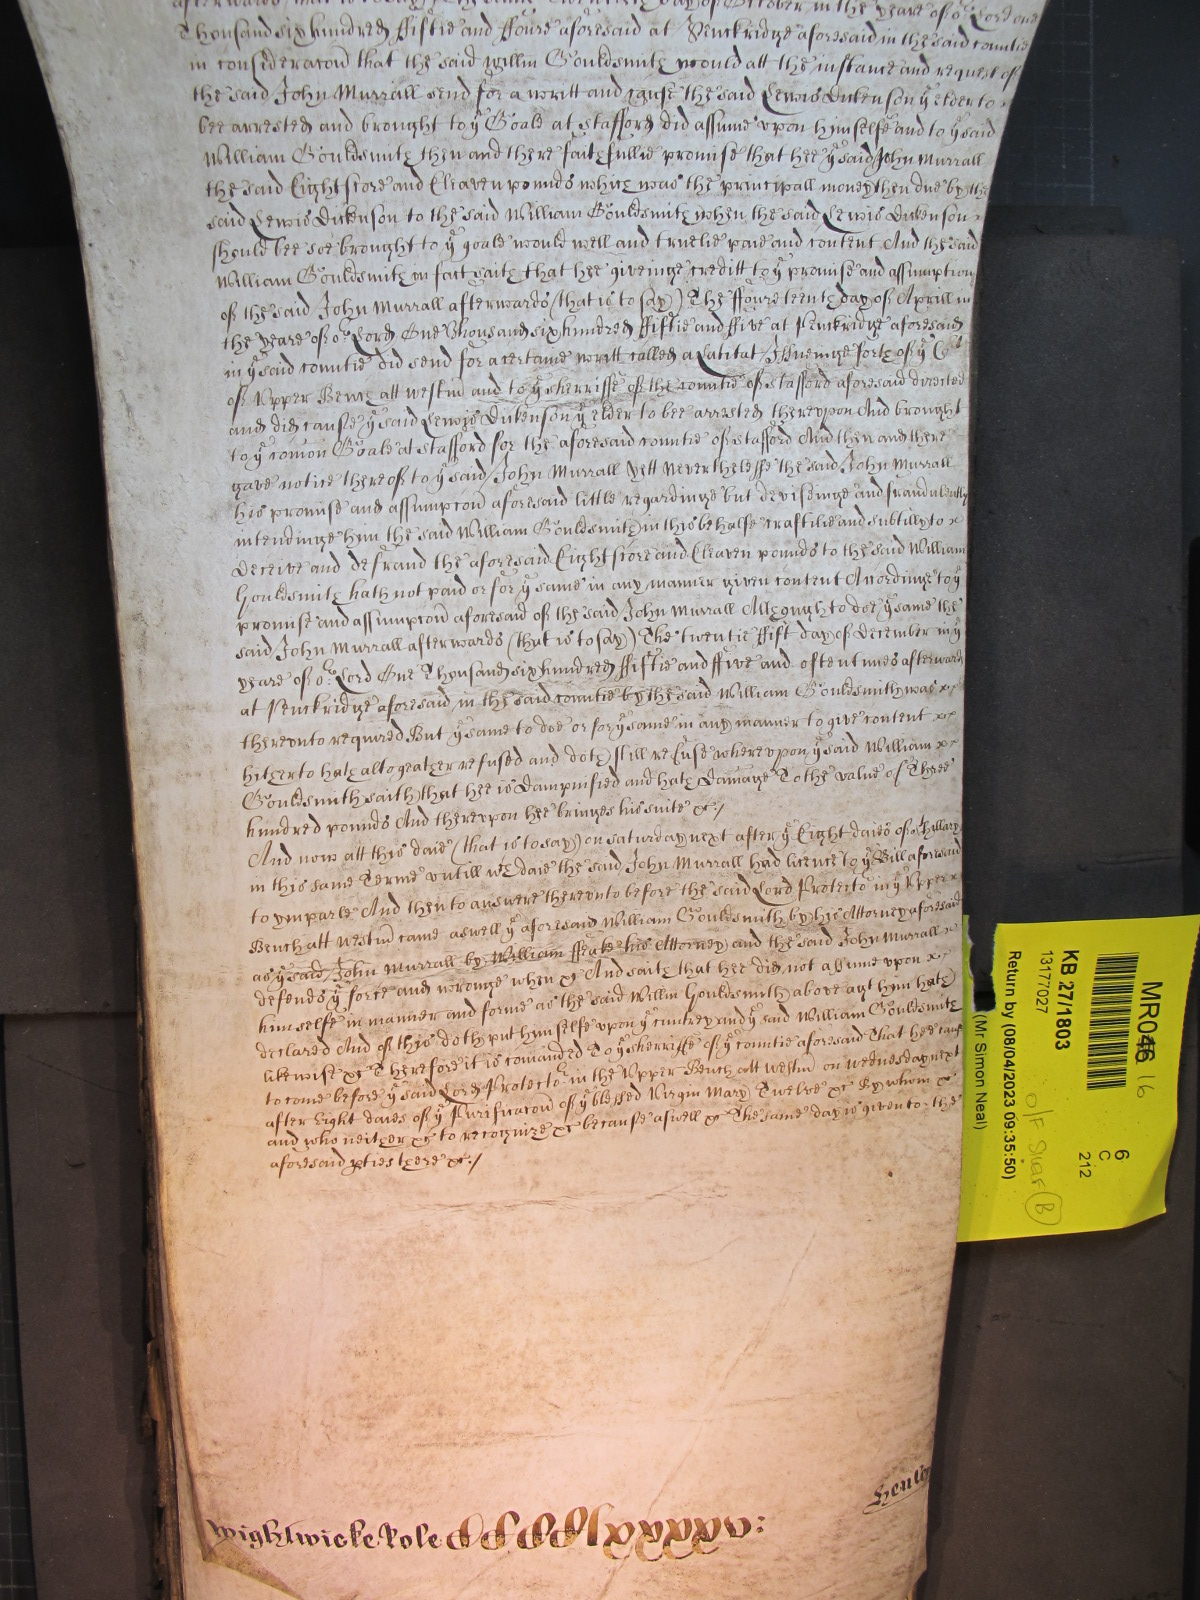 afterwards (that is to say) the day of October in the yeare of oʳ Lord one
Thousand six hundred ffiftie and ffoure aforesaid at Penckridge aforesaid in the said countie
in consideracon that the said Willm Gouldsmith would att the instance and request of
the said John Murrall send for a writt and cause the said Lewis Dickenson yᵉ elder to
bee arrested and brought to yᵉ Goale at Stafford did assume vpon himselfe and to yᵉ said
William Gouldsmith then and there faithfullie promise that hee yᵉ said John Murrall
the said Eight score and Eleaven pounds which was the principall money then due by the
said Lewis Dickenson to the said William Gouldsmith when the said Lewis Dickenson
should bee soe brought to yᵉ goale would well and truelie paie and content And the said
William Gouldsmith in fact saith that hee giveinge creditt to yᵉ promise and assumption
of the said John Murrall afterwards (that is to say) The ffoureteenth day of Aprill in
the yeare of oʳ Lord One Thousand six hundred ffiftie and ffive at Penckridge aforesaid
in yᵉ said countie did send for a certaine writt called a Latitat Issueinge forth of yᵉ
of Vpper Bench att Westm and to yᵉ sherriffe of the countie of Stafford aforesaid directed
and did cause yᵉ said Lewis Dickenson yᵉ elder to bee arrested therevpon And brought
to yᵉ comon Goale at Stafford for the aforesaid countie of Stafford And then and there
gave notice thereof to yᵉ said John Murrall Yett Neverthelesse the said John Murrall
his promise and assumpcon aforesaid little regardinge but deviseinge and fraudulently
intendinge hym the said William Gouldsmith in this behalfe craftilie and subtilly to x
Deceive and defraud the aforesaid Eight score and Eleaven pounds to the said William
Gouldsmith hath not paid or for yᵉ same in any manner given content Accordinge to yᵉ
promise and assumpcon aforesaid of the said John Murrall Although to doe yᵉ same the
said John Murrall afterwards (that is to say) The twentie ffift day of December in yᵉ
yeare of oʳ Lord One Thousand six hundred ffiftie and ffive and oftentimes afterwards
at Penckridge aforesaid in the said countie by the said William Gouldsmith was xx
therevnto required But yᵉ same to doe or for yᵉ same in any manner to give content xx
hitherto hath altogeather refused and doth still refuse wherevpon yᵉ said William xx
Gouldsmith saith that hee is Dampnified and hath Damage To the value of Three
hundred pounds And therevpon hee bringes his suite &c./
And now att this daie (that is to say) on Saturday next after yᵉ Eight daies of Sᵗ Hillary
in this same Terme vntill wᶜʰ daie the said John Murrall had licence to yᵉ Bill aforesaid
to ymparle And then to answere therevnto before the said Lord Protectoʳ in yᵉ Vpper x
Bench att Westm came aswell yᵉ aforesaid William Gouldsmith by his Attorney aforesaid
as yᵉ said John Murrall by William ffeake his Attorney and the said John Murrall x
defends yᵉ force and wronge when &c And saith that hee did not assume vpon x
himselfe in manner and forme as the said Willm Gouldsmith above agt hym hath
declared And of this doth put hymselfe vpon yᵉ cuntrey and yᵉ said William Gouldsmith
likewise &c Therefore it is comanded To yᵉ sherriffe of yᵉ countie aforesaid That hee cause
to come before yᵉ said Lord Protectoʳ in the Vpper Bench att Westm on Wednesday next
after Eight daies of yᵉ Purificacon of yᵉ blessed Virgin Mary Twelve &c By whom &c
and who neither &c to recognize &c because aswell &c The same day is given to the
aforesaid pties there &c./
Henley
Wightwicke Role
MR046 16
KB 27/1803
13177027
Return by (08/04/2023 09:35:50)
(Mr Simon Neal)
6
C
212
O/F
B